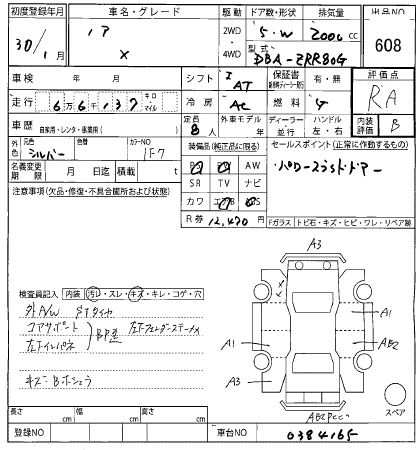 初度登録年月 車名・グレード 駆動 ドア数・形状 排気量 出品NO
30/1月 ノア X 2WD・4WD 5・W 2000cc 608
型式 DBA-ZRR80G
車検 年 月 シフト I AT 保証書 有・無 評価点
走行 66,137 キロ・マイル 冷房 AC 燃料 ガ RA
車歴 自家用・レンタ・事業用( ) 定員 8人 外車モデル 年 ディーラー・並行 ハンドル 左・右 内装評価 B
外色 元色 シルバー 色替 カラーNO 1F7 装備品(純正品に限る) セールスポイント(正常に作動するもの)
名義変更期限 月 日迄 積載 t PS PW AW ・パワースラSドドアー
注意事項(欠品・修復・不具合箇所および状態) SR TV ナビ
カワ エアB ABS
R券 12,470円 Fガラス トビ石・キズ・ヒビ・ワレ・リペア跡
A3
検査員記入 内装 汚れ・スレ・キズ・キレ・コゲ・穴
外A/W STタイヤ
コアサポート
左下インパネ BP歪 左フェンダーステーナメ
キズ・Bホショウ
A1 A1 AB2 A3
スペア
長さ cm 幅 cm 高さ cm
登録NO 車台NO 0384165-